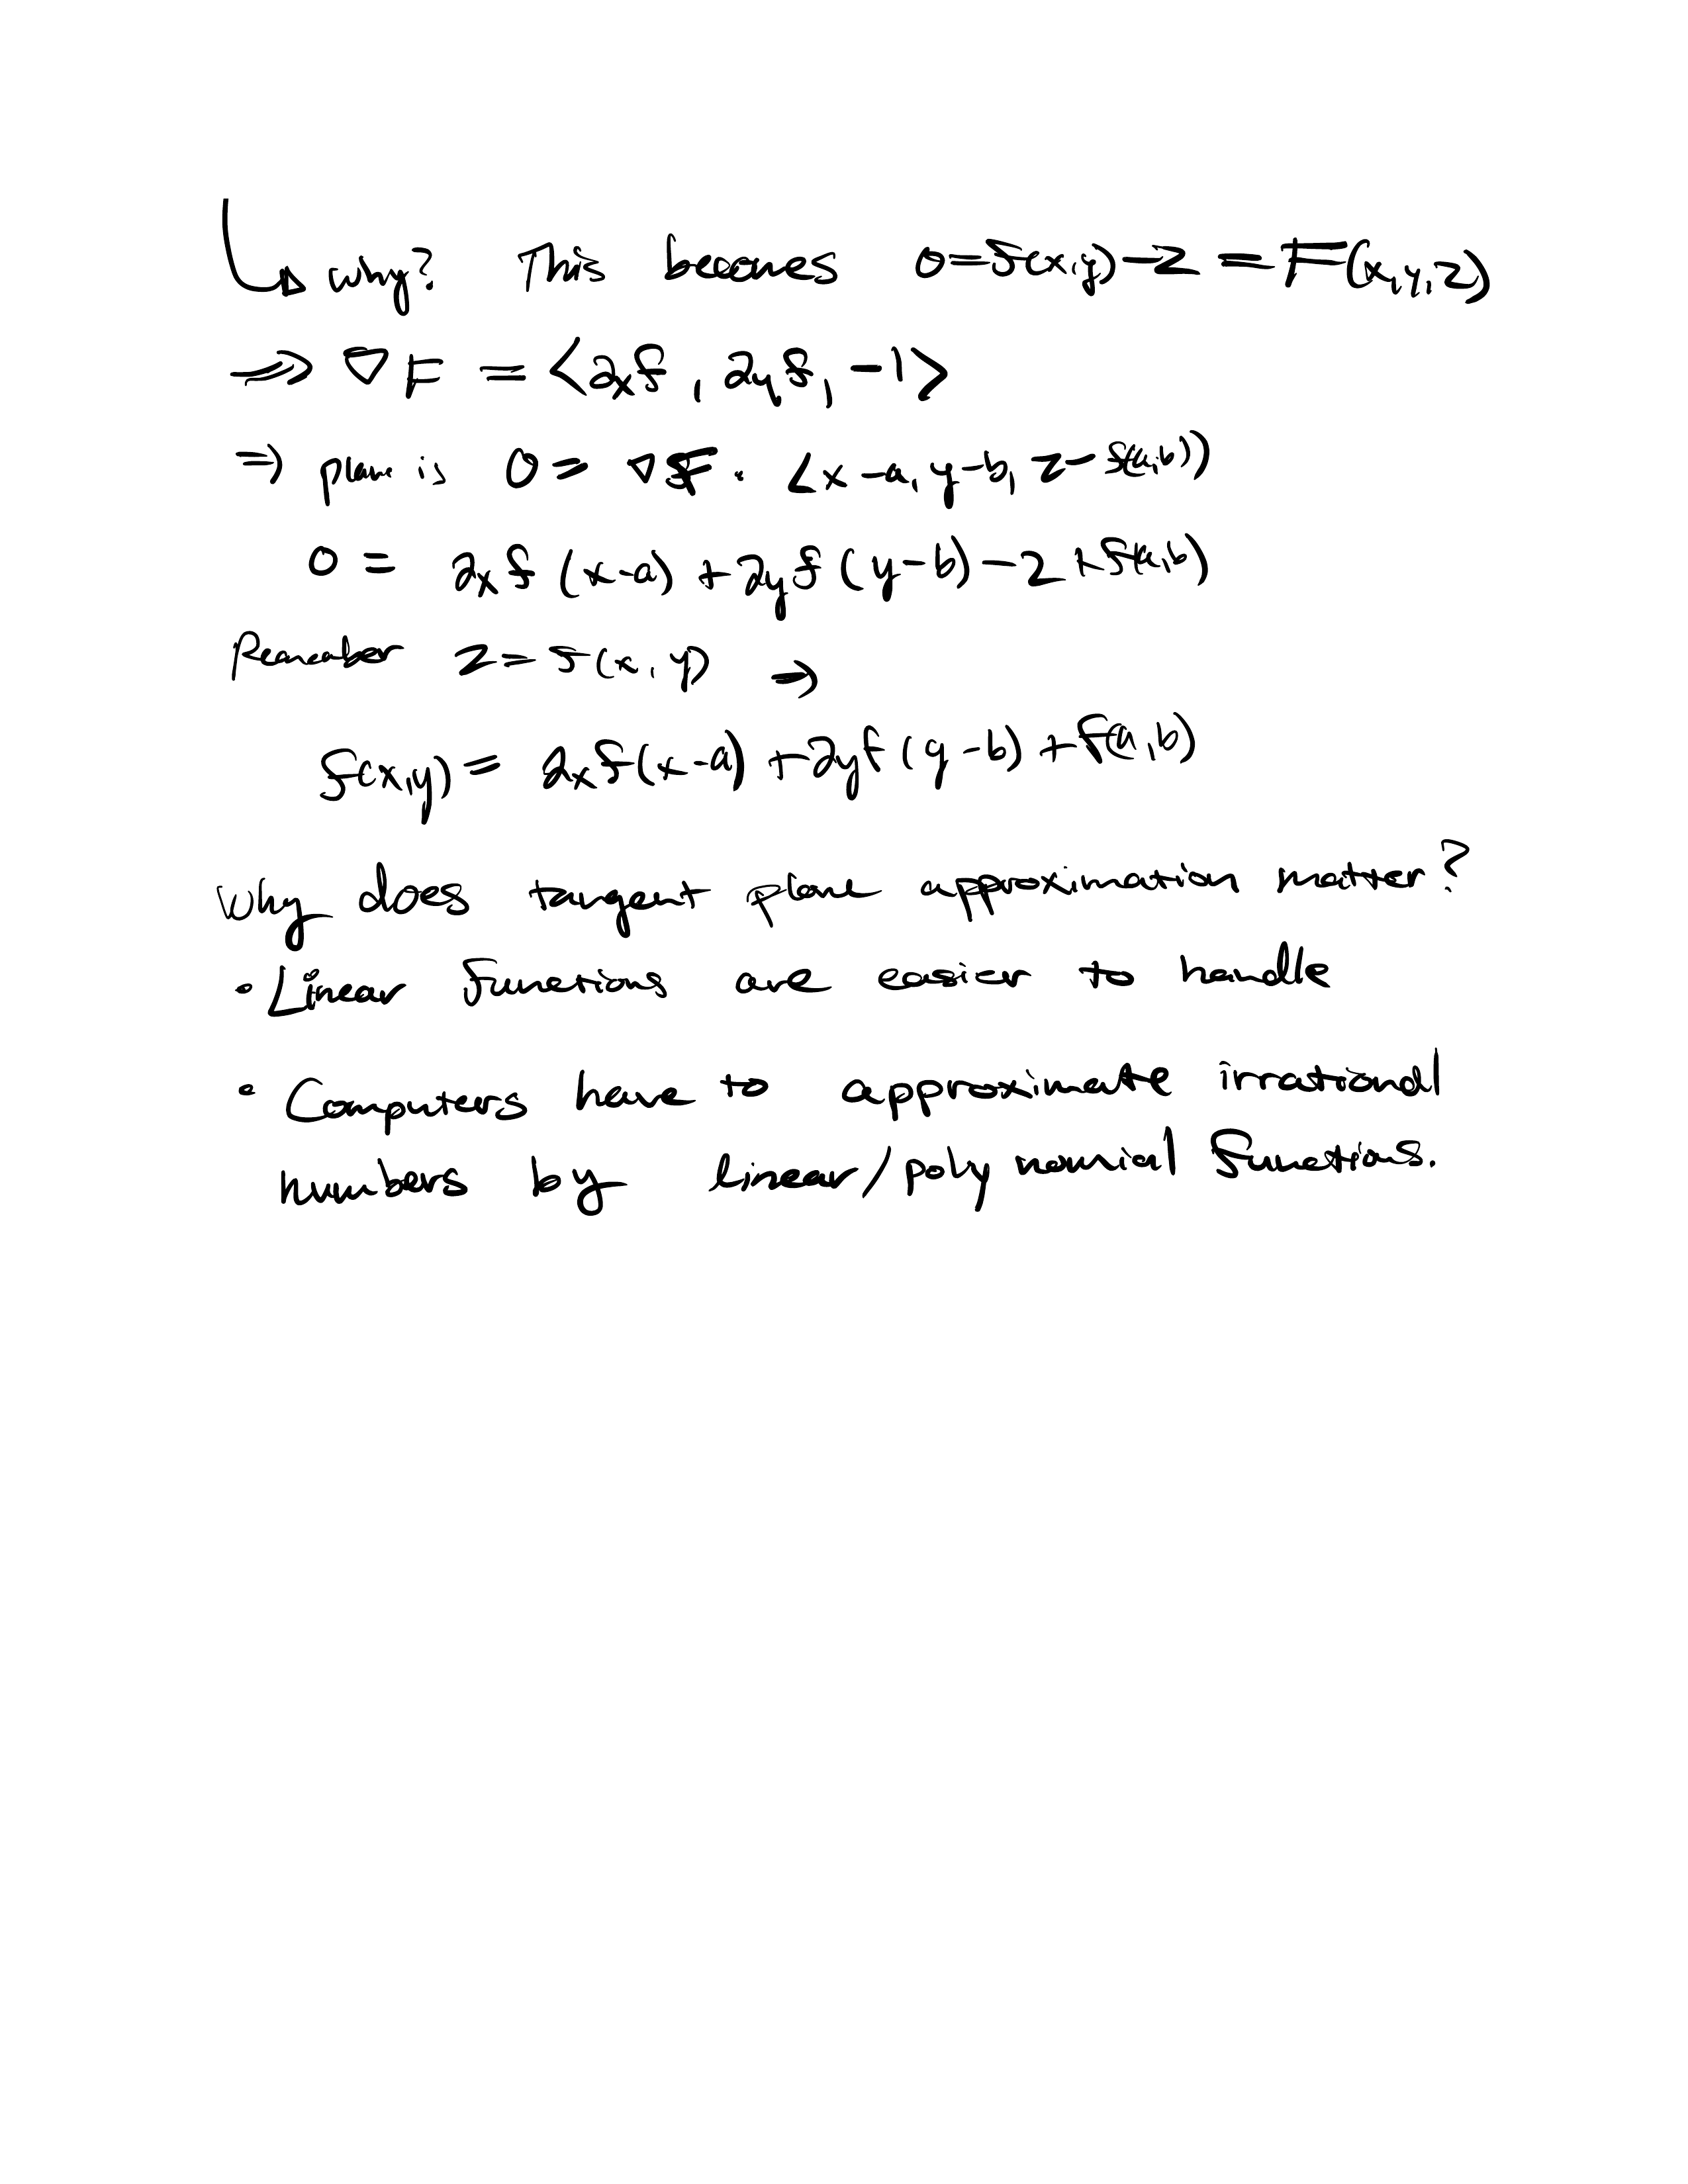 ↳ why? This becomes 0=f(x,y)-z = F(x,y,z)
⇒ ∇F = <∂xf, ∂yf, -1>
⇒ plane is 0 = ∇F · <x-a, y-b, z-f(a,b)>
0 = ∂xf (x-a) + ∂yf (y-b) - z + f(a,b)
Remember z = f(x,y) ⇒
f(x,y) = ∂xf(x-a) + ∂yf (y-b) + f(a,b)
Why does tangent plane approximation matter?
• Linear functions are easier to handle
• Computers have to approximate irrational
numbers by linear/polynomial functions.